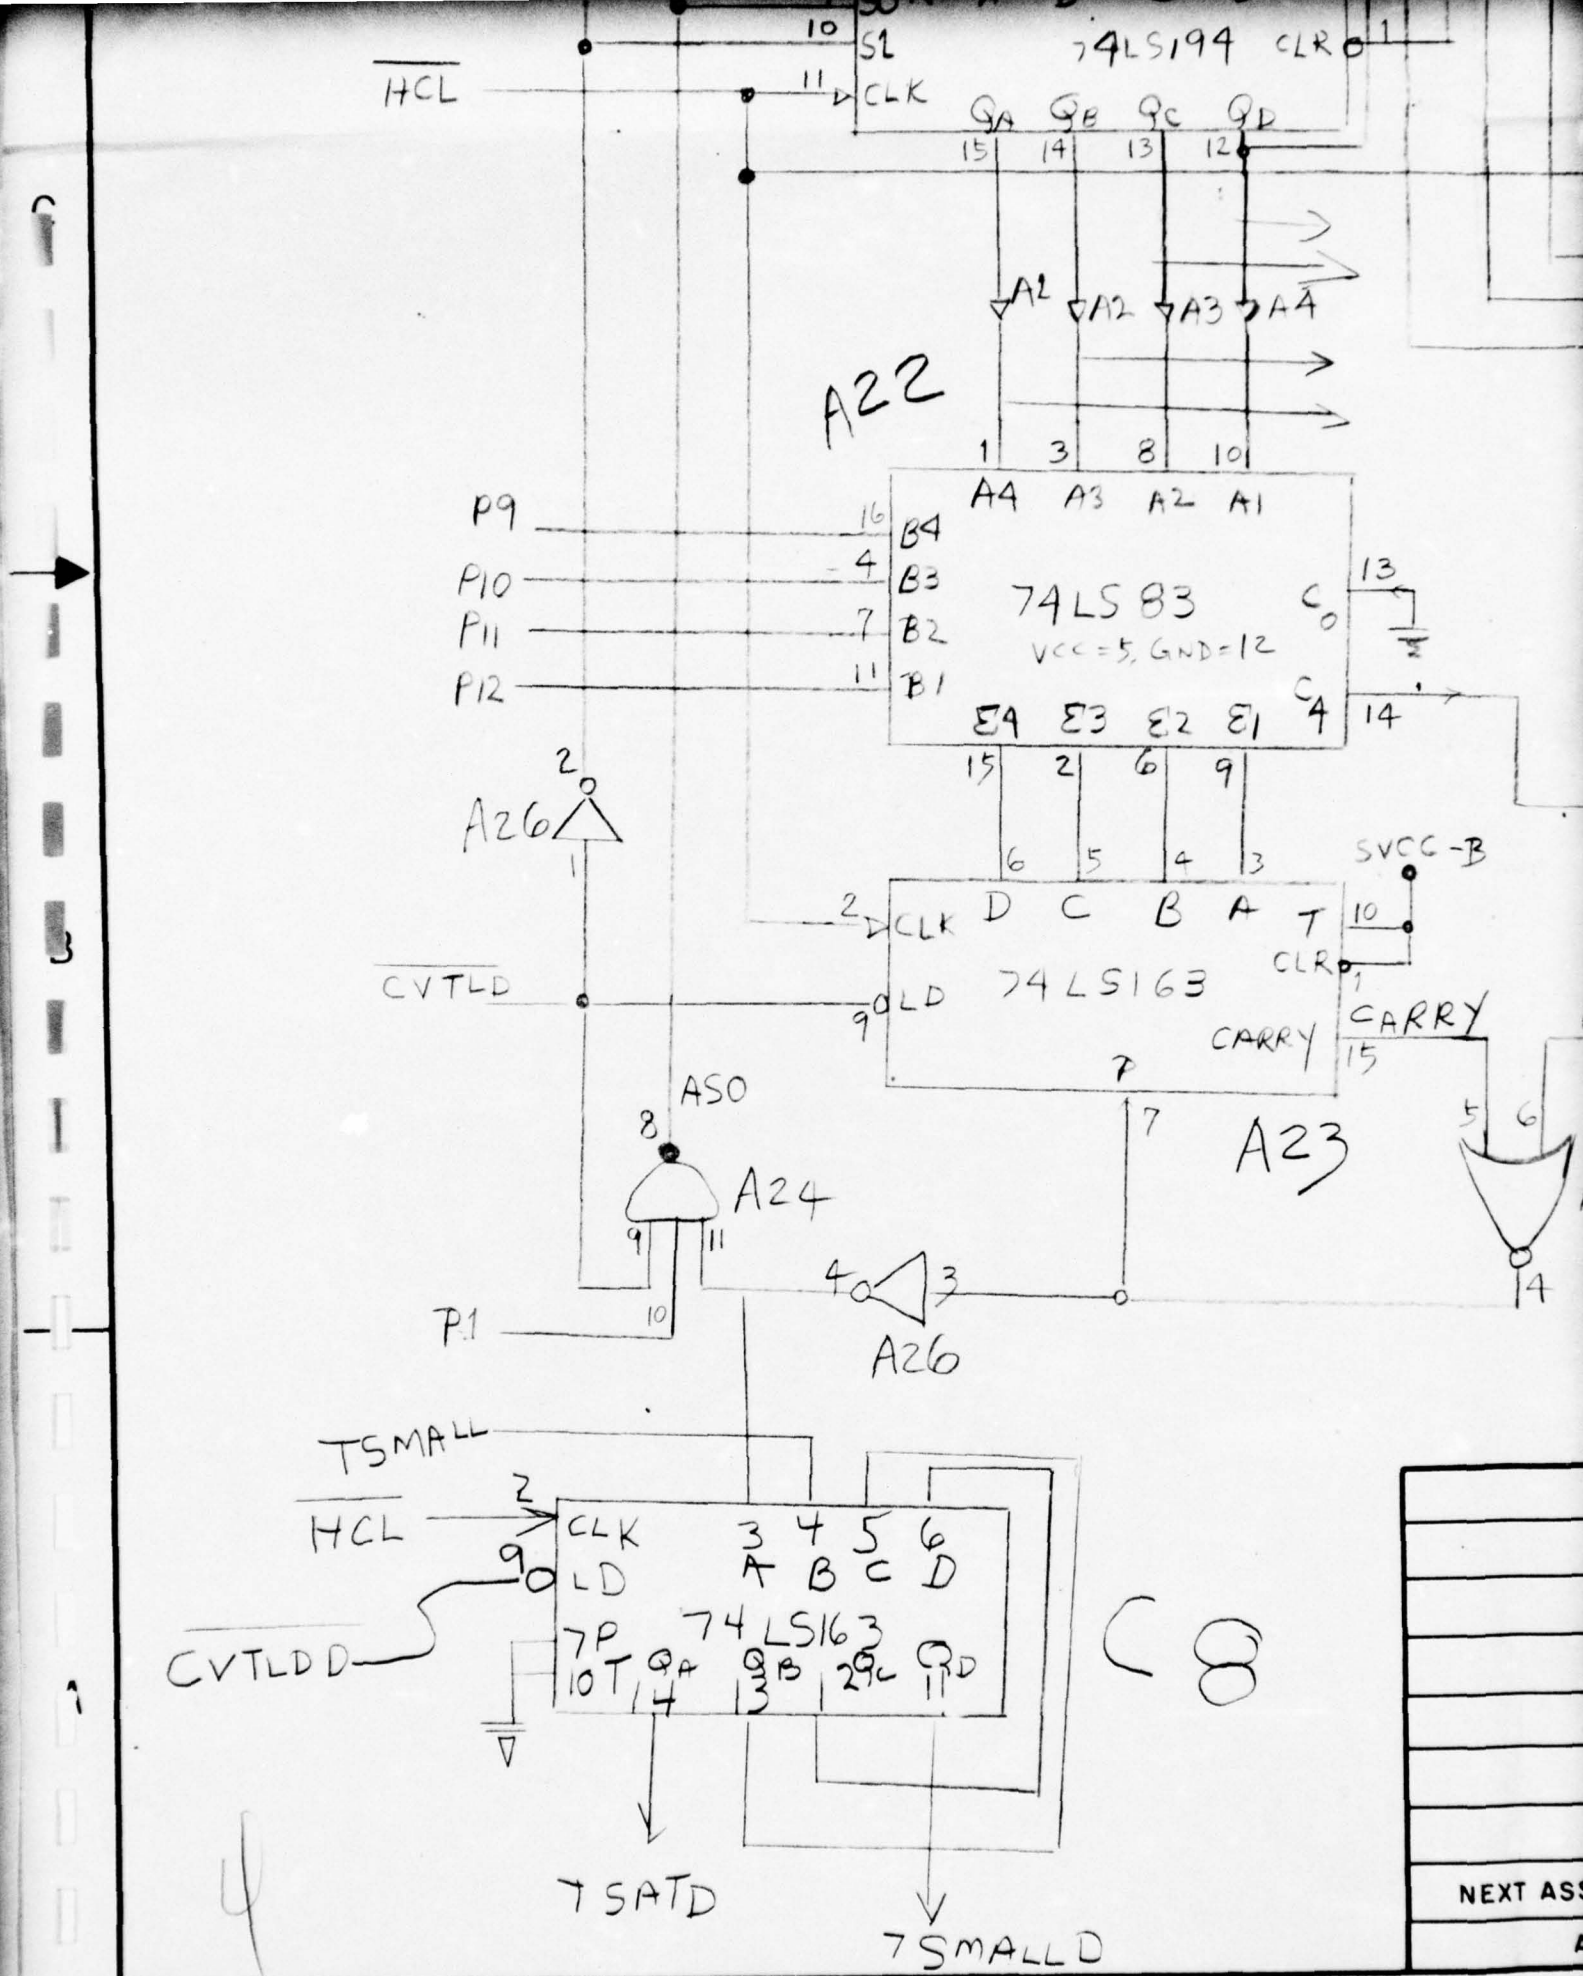 10 S1 74LS194 CLR 1
HCL 11 CLK
QA QB QC QD
15 14 13 12
A1 A2 A3 A4
A22
1 3 8 10
A4 A3 A2 A1
P9 16 B4
P10 4 B3 13
P11 7 B2 74LS83 C0
VCC=5, GND=12
P12 11 B1 C4 14
Σ4 Σ3 Σ2 Σ1
15 2 6 9
2
A26
1
6 5 4 3
5VCC-B
2 CLK D C B A T 10
CLR 1
CVTLD 9 LD 74LS163
CARRY CARRY
15
P
7
AS0
8
5 6
A23
A24
9 11
4 3
4
P1 10
A26
TSMALL
HCL 2 CLK 3 4 5 6
9 LD A B C D
74LS163
C8
CVTLDD 7P
10T QA QB QC QD
14 13 12 11
TSATD
TSMALLD
4
NEXT ASS